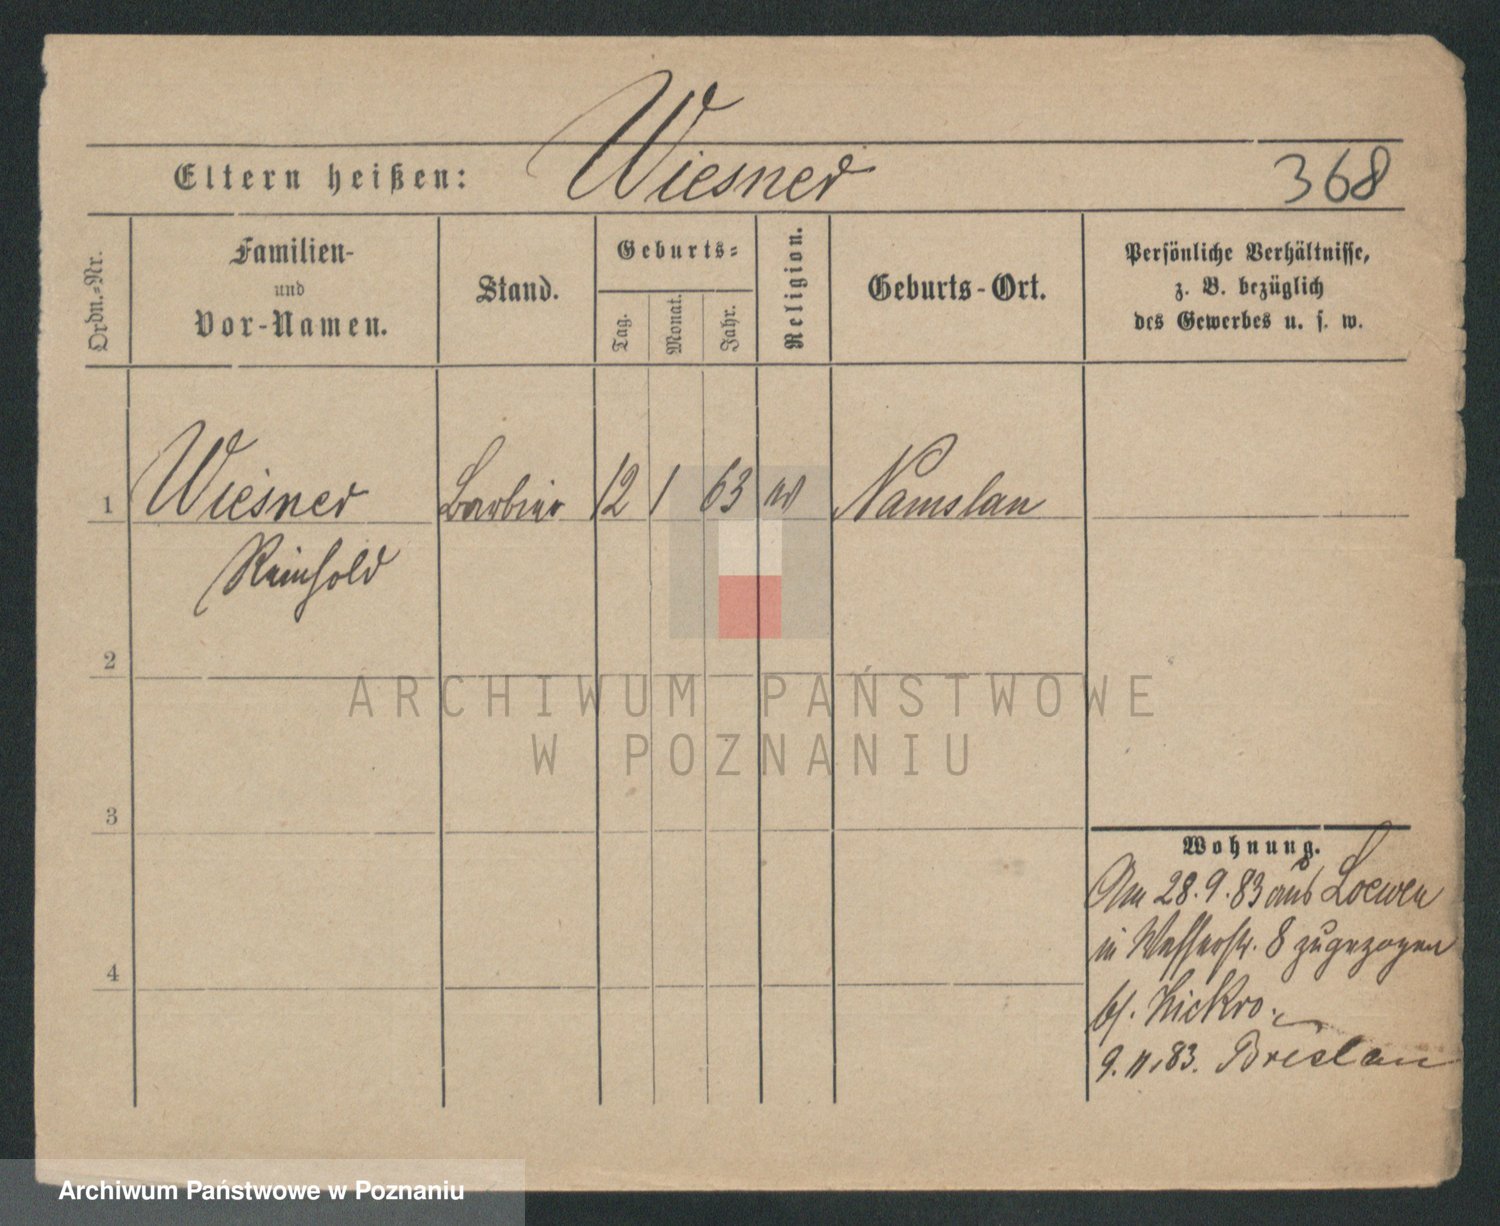 Wiesner
Eltern heißen:
368
Ordn.-Nr.
Familien-
und
Vor-Namen.
Stand.
Geburts-
Tag.
Monat.
Jahr.
Religion.
Geburts-Ort.
Persönliche Verhältnisse,
z. B. bezüglich
des Gewerbes u. s. w.
1 Wiesner Barbier 12 1 63 Namslau
Reinhold
2
ARCHIWUM PAŃSTWOWE
W POZNANIU
3
Wohnung.
Am 28.9.83 aus Loewen
in Wasserstr. 8 zugezogen
4
9.11.83. Breslau
Archiwum Państwowe w Poznaniu